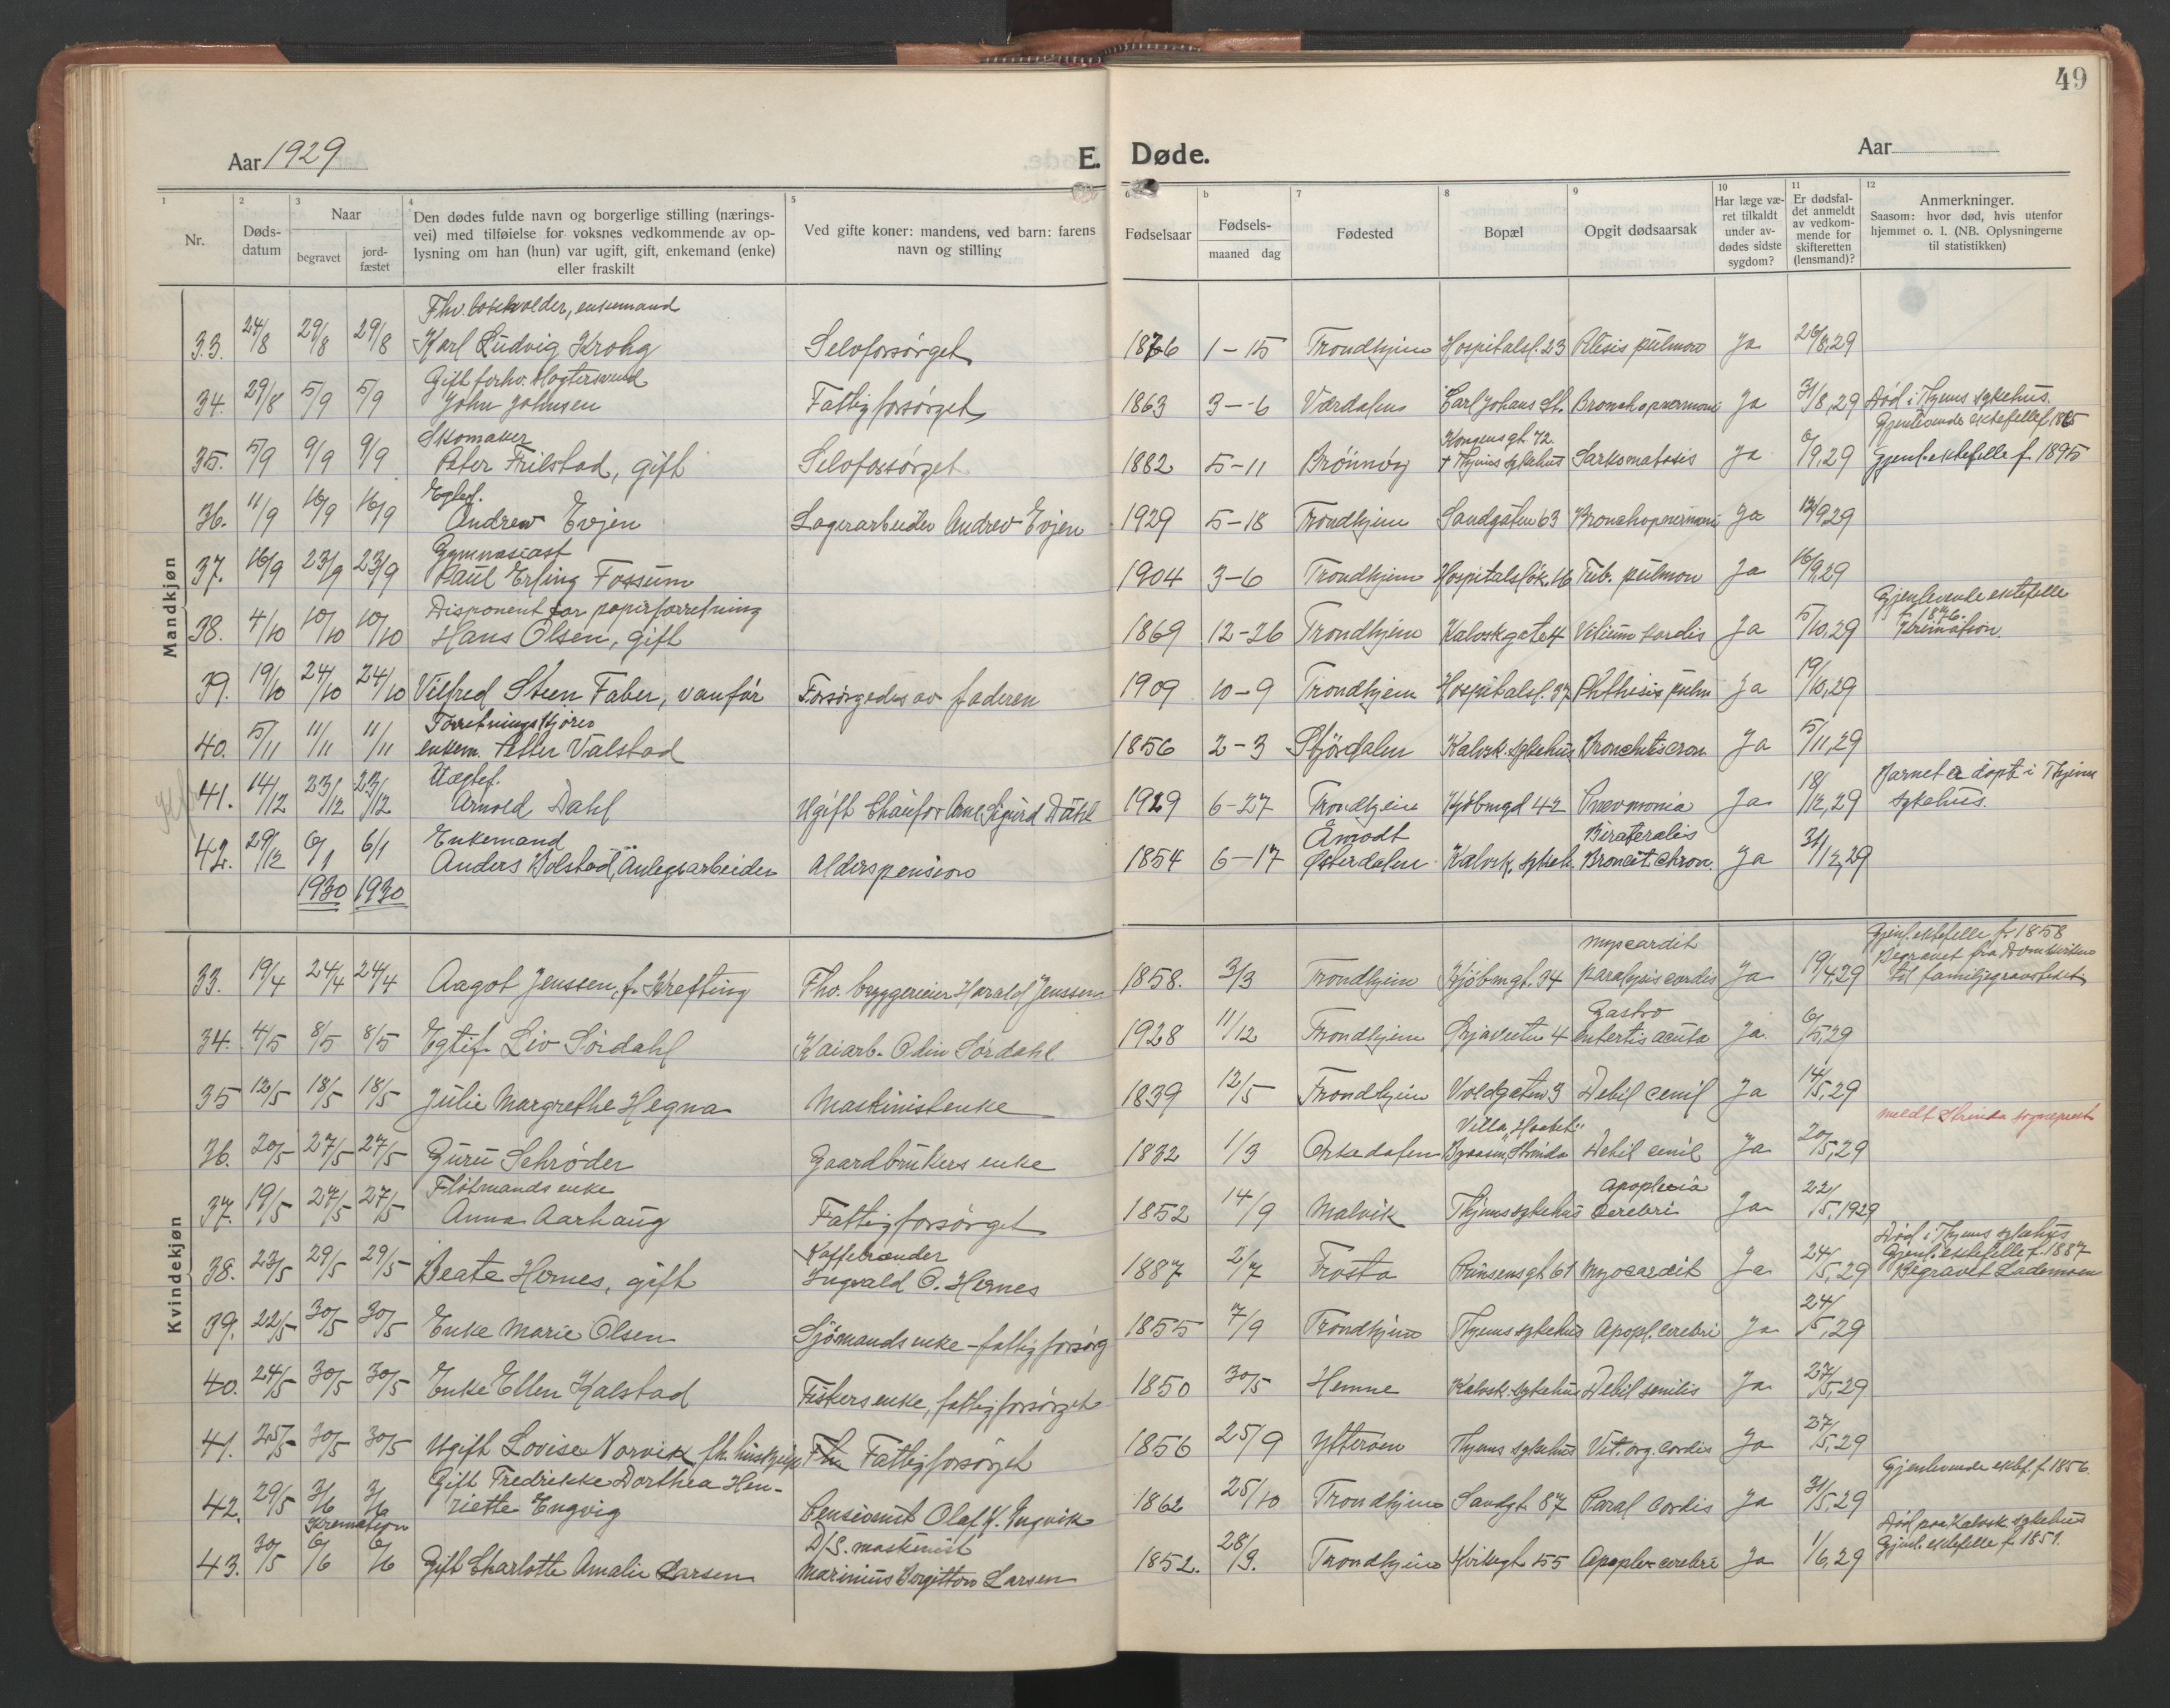 49
Aar 1929
E. Døde.
Aar
1 Nr.
2 Dødsdatum
3 Naar
begravet
jordfæstet
4 Den dødes fulde navn og borgerlige stilling (næringsvei) med tilføielse for voksnes vedkommende av oplysning om han (hun) var ugift, gift, enkemand (enke) eller fraskilt
5 Ved gifte koner: mandens, ved barn: farens navn og stilling
6 Fødselsaar
b Fødsels-
maaned dag
7 Fødested
8 Bopæl
9 Opgit dødsaarsak
10 Har læge været tilkaldt under avdødes sidste sygdom?
11 Er dødsfaldet anmeldt av vedkommende for skifteretten (lensmand)?
12 Anmerkninger.
Saasom: hvor død, hvis utenfor hjemmet o. l. (NB. Oplysningerne til statistikken)
Mandkjøn
33. 24/8 29/8 29/8 Fhv. enkemand Karl Ludvig Krohg Selvforsørget 1876 1-15 Trondhjem Hospitalsl. 23 pulmon Ja 26/8,29
34. 29/8 5/9 5/9 Gift forhv. John Johnsen Fattigforsørget 1863 3-6 Værdalen Carl Johans St. Bronchopneumoni Ja 31/8,29 Død i Thjems sykehus. Gjenlevende ektefelle f. 1865
35. 5/9 9/9 9/9 Skomaker Peter Frilstad, gift Selvforsørget 1882 5-11 Brønnøy Kongensgt. 72. + Thjems sykehus Sarkomatosis Ja 6/9,29 Gjenl. ektefelle f. 1895
36. 11/9 16/9 16/9 Egtef. Andrew Evjen Lagerarbeider Andrew Evjen 1929 5-18 Trondhjem Sandgaten 63 Bronchopneumoni Ja 12/9,29
37. 16/9 23/9 23/9 Gymnasiast Paul Erling Fossum 1904 3-6 Trondhjem Hospitalsløk. 16 Tub. pulmon Ja 16/9,29
38. 4/10 10/10 10/10 Disponent for papirforretning Hans Olsen, gift 1869 12-26 Trondhjem Kalvskgate 4 Vitium cordis Ja 5/10,29 Gjenlevende ektefelle f. 1876. Kremation.
39. 19/10 24/10 24/10 Vilfred Steen Faber, vanfør Forsørgedes av faderen 1909 10-9 Trondhjem Hospitalsl. 37 Phthisis pulm Ja 19/10,29
40. 5/11 11/11 11/11 Forretningskjører enkem. Petter Valstad 1856 2-3 Stjørdalen Kalvsk. sykehus Bronchitis cron Ja 5/11,29
41. 14/12 23/12 23/12 Uegtef. Arnold Dahl Ugift Chaufør Arne Sigurd Dahl 1929 6-27 Trondhjem Kjøbmgd 42 Pneumonia Ja 18/12,29 Barnet er døpt i Thjems sykehus.
42. 29/12 6/1 1930 6/1 1930 Enkemand Anders Bolstad, Anlegsarbeider Alderspension 1854 6-17 Åmodt Østerdalen Kalvsk. sykeh. Bronsit. chron. Ja 31/12,29
Kvindekjøn
33. 19/4 24/4 24/4 Aagot Jenssen, f. Krefting Fhv. bryggerieier Harald Jenssen 1858. 3/3 Trondhjem Kjøbmgt. 34 myocardit paralysis cordis Ja 19/4,29 Gjenl. ektefelle f. 1858 Begravet fra Domkirken til familjegravstedet
34. 4/5 8/5 8/5 Egtef. Liv Sørdahl Kaiarb. Odin Sørdahl 1928 11/12 Trondhjem 4 Gastro entertis acuta Ja. 6/5,29
35 12/5 18/5 18/5 Julie Margrethe Hegna Maskinistenke 1839 12/5 Trondhjem Voldgaten 9 Debil cenil Ja 14/5,29
36. 20/5 27/5 27/5 Guru Schrøder Gaardbrukers enke 1832 1/3 Orkedalen Villa Byaasen, Strinda Debil cenil Ja 20/5,29 meldt Strinda sogneprest
37. 19/5 27/5 27/5 Fløtmands enke Anna Aarhaug Fattigforsørget 1852 14/9 Malvik Thjems sykehus apoplexia cerebri Ja 22/5,1929
38. 23/5 29/5 29/5 Beate Hernes, gift Kaffebrænder Ingvald O. Hernes 1887 2/7 Frosta Prinsensgt. 61 Myocardit Ja 24/5,29 Død i Thjems sykehus Gjenl. ektefelle f. 1887 Begravet Lademoen
39. 22/5 30/5 30/5 Enke Marie Olsen Sjømands enke - fattigforsørg 1855 7/9 Trondhjem Thjems sykehus Apopl. cerebri Ja 24/5,29
40. 24/5 30/5 30/5 Enke Ellen Kalstad Fiskers enke, fattigforsørget 1850 30/5 Hemne Kalvsk. sykehus Debil senilis Ja 27/5,29
41. 25/5 30/5 30/5 Ugift Lovise Norvik fh. huskjelp Fattigforsørget 1856 25/9 Ytterøen Thjems sykehus Vit. org. cordis Ja 27/5,29
42. 29/5 3/6 3/6 Kremation Gift Fredrikke Dorthea Henriette Engvig Pensionist Olaf K. Engvik 1862 25/10 Trondhjem Sandgt. 87 Paral Cordis Ja 31/5,29 Gjenlevende ektef. f. 1856.
43. 30/5 6/6 6/6 Gift Charlotte Amalie Larsen D/S. maskinist Marinius Bergitton Larsen 1852. 28/9. Trondhjem 55 Apoplex cerebri Ja 1/6,29 Død paa Kalvsk. sykehus Gjenl. ektefelle f. 1851.